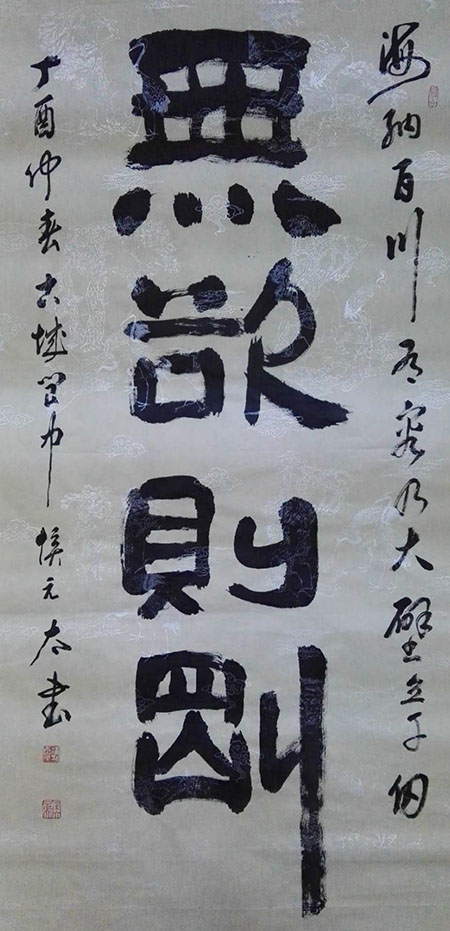 海纳百川有容乃大壁立千仞
無欲則剛
丁酉仲春古城阆中侯元太书